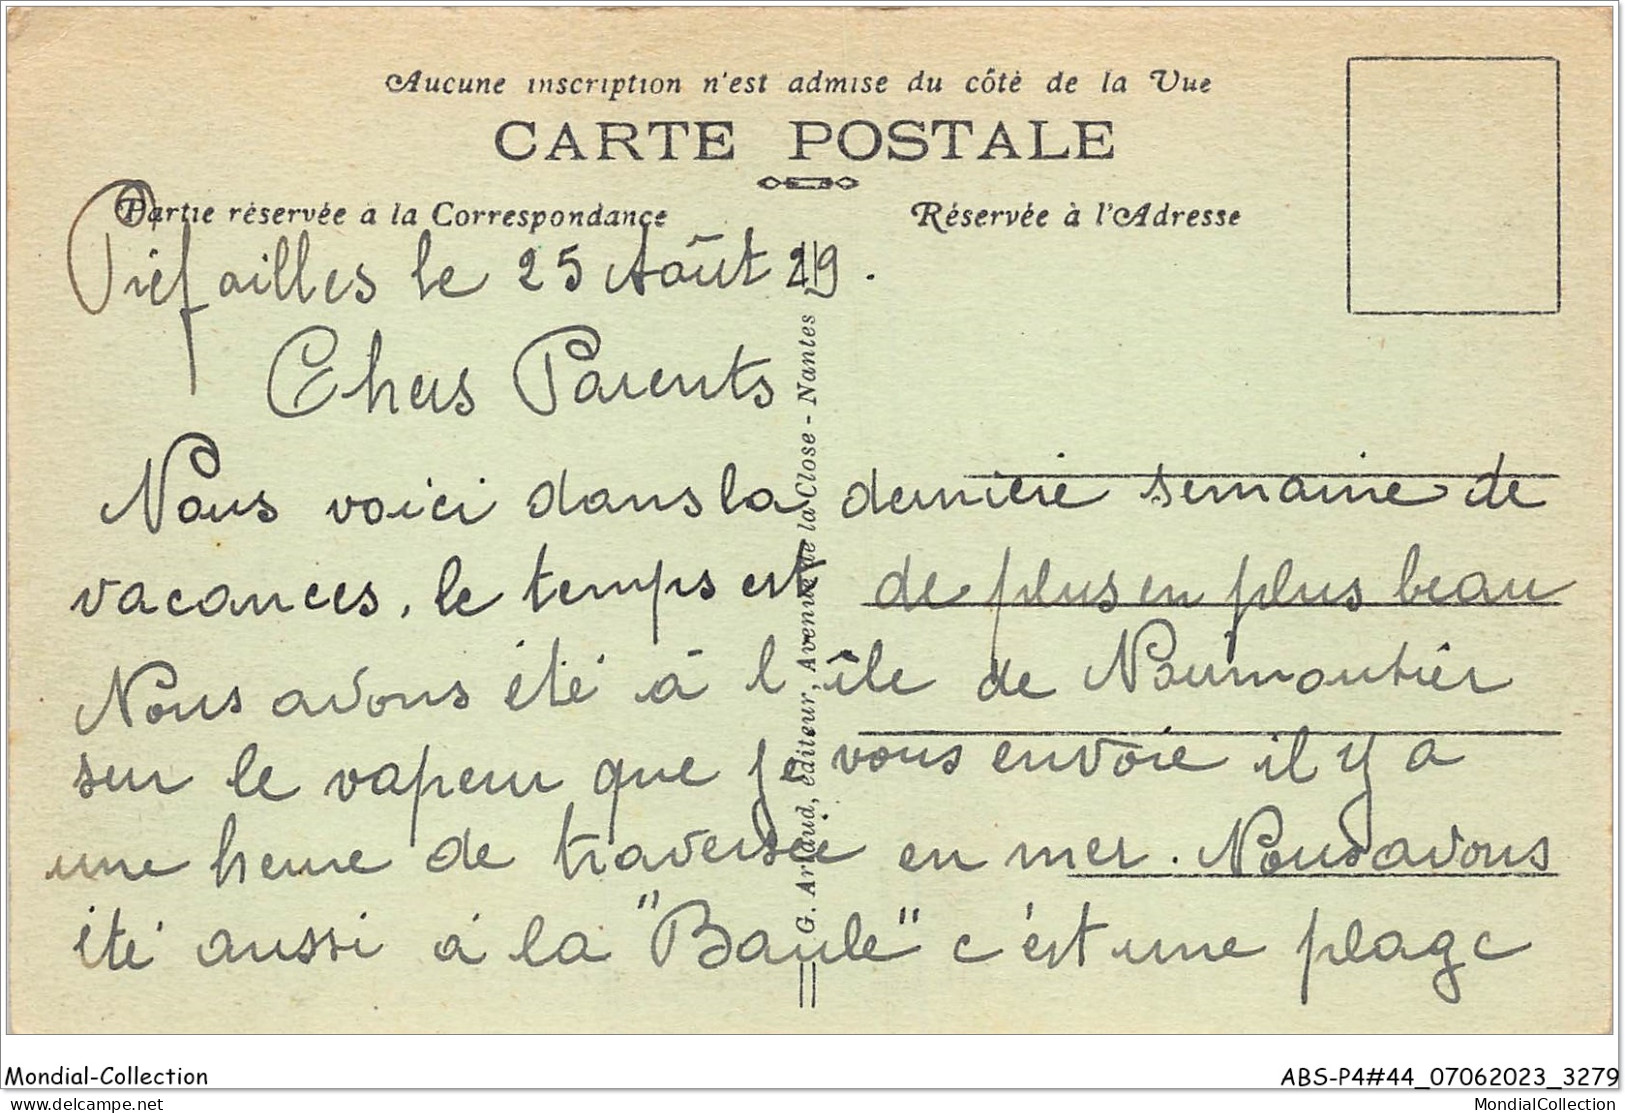 Aucune inscription n'est admise du côté de la Vue
CARTE POSTALE
Partie réservée à la Correspondance
Réservée à l'Adresse
Préfailles le 25 Août 29.
Chers Parents
Nous voici dans la dernière semaine de
vacances, le temps est de plus en plus beau
Nous avons été à l'île de Noirmoutier
sur le vapeur que je vous envoie il y a
une heure de traversée en mer. Nous avons
été aussi à la "Baule" c'est une plage
G. Artaud, éditeur, Avenue de la Close - Nantes
Mondial-Collection
ABS-P4#44_07062023_3279
delcampe.net
MondialCollection